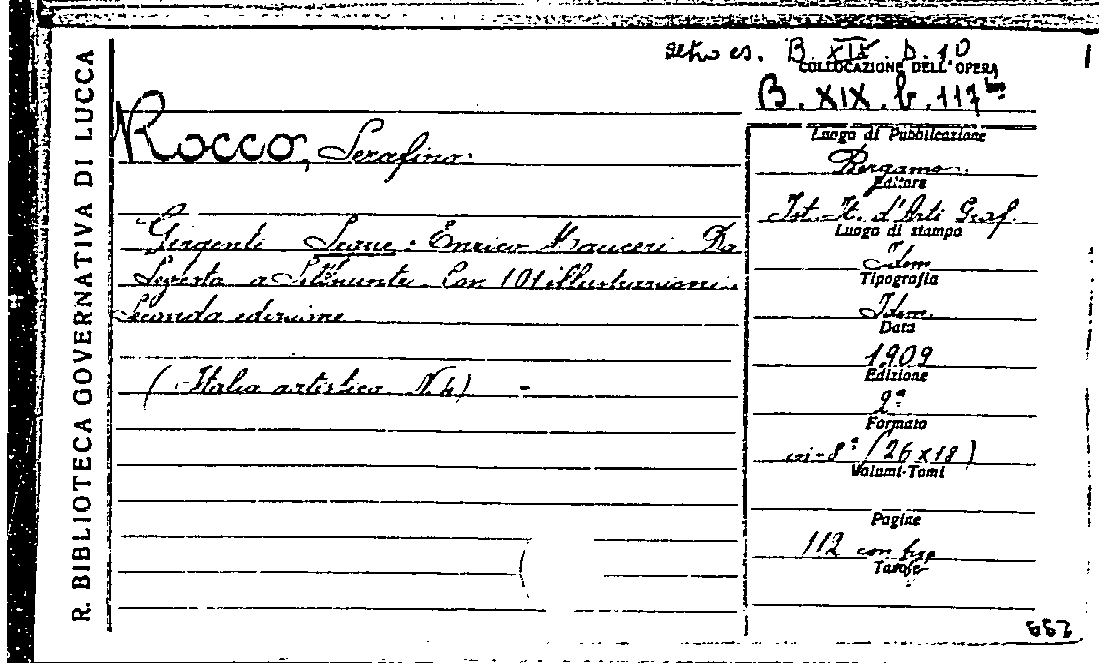 R. BIBLIOTECA GOVERNATIVA DI LUCCA
altro es. B. XIX. D. 10
COLLOCAZIONE DELL'OPERA
B. XIX. b. 117 bis
ROCCO, Serafino.
Girgenti. Segue: Enrico Mauceri. Da
Segesta a Selinunte. Con 101 illustrazioni.
Seconda edizione
(Italia artistica N. 4) -
Luogo di Pubblicazione
Bergamo.
Editore
Ist. It. d'Arti Graf.
Luogo di stampa
Idem
Tipografia
Idem.
Data
1909
Edizione
2ª
Formato
in-8° (26x18)
Volumi-Tomi
Pagine
112 con
Tavole